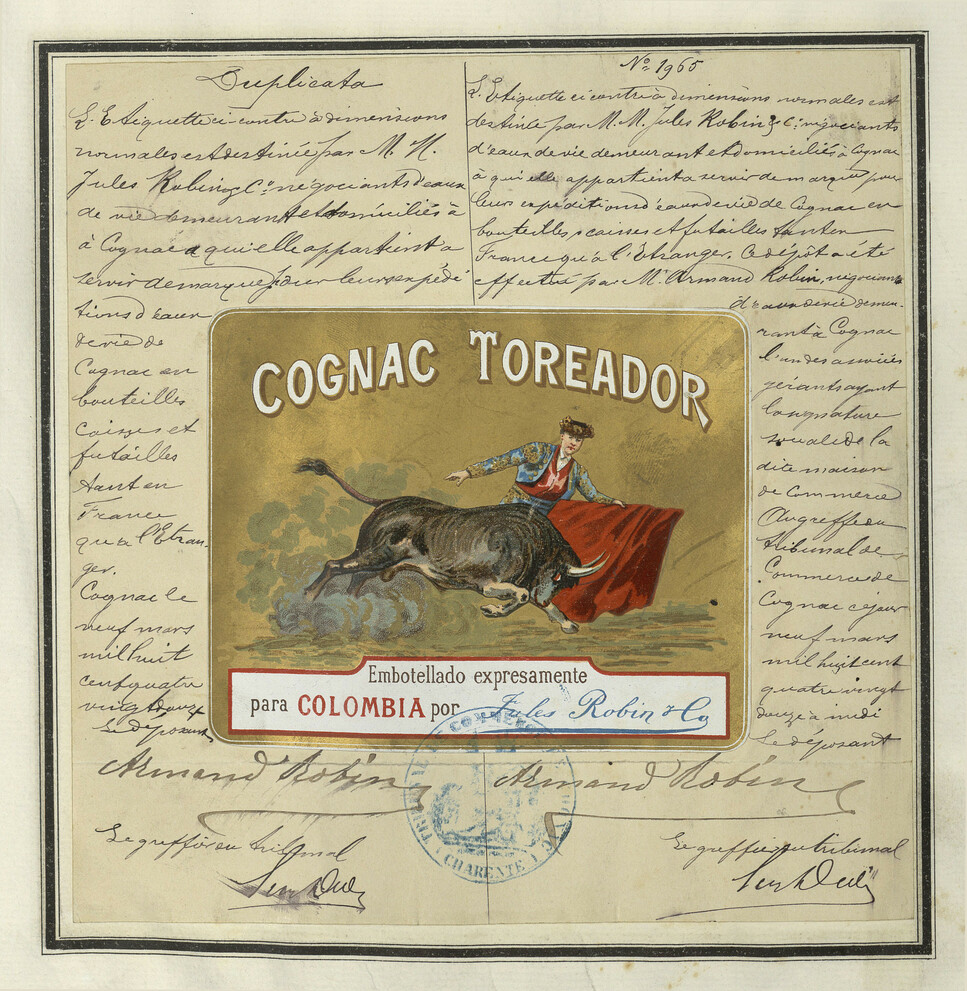 Duplicata
L'Etiquette ci-contre à dimensions
normales est destinée par M. M.
Jules Robin & Co négociants d'eaux
de vie demeurant et domiciliés à
à Cognac a qui elle appartient a
servir de marque pour leurs expédi
tions d'eaux
de vie de
Cognac en
bouteilles
caisses et
futailles
tant en
France
qu'a l'Etran-
ger.
Cognac le
neuf mars
mil huit
cent quatre
vingt douze
Le déposant
Armand Robin
Le greffier du tribunal
No 1965
L'Etiquette ci contre à dimensions normales est
destinée par M. M. Jules Robin & Co négociants
d'eaux de vie demeurant et domiciliés à Cognac
à qui elle appartient a servir de marque pour
leurs expéditions d'eaux de vie de Cognac en
bouteilles, caisses et futailles tant en
France qu'à l'Etranger. Ce dépôt a été
effectué par Mr Armand Robin, négociant
d'eaux de vie demeu-
rant à Cognac
l'un des associés
gérants ayant
la signature
sociale de la
dite maison
de Commerce
Au greffe du
tribunal de
Commerce de
Cognac ce jour
neuf mars
mil huit cent
quatre vingt
douze à midi
Le déposant
Armand Robin
Le greffier du tribunal
COGNAC TOREADOR
Embotellado expresamente
para COLOMBIA por Jules Robin & Co
TRIBUNAL DE COMMERCE COGNAC
CHARENTE